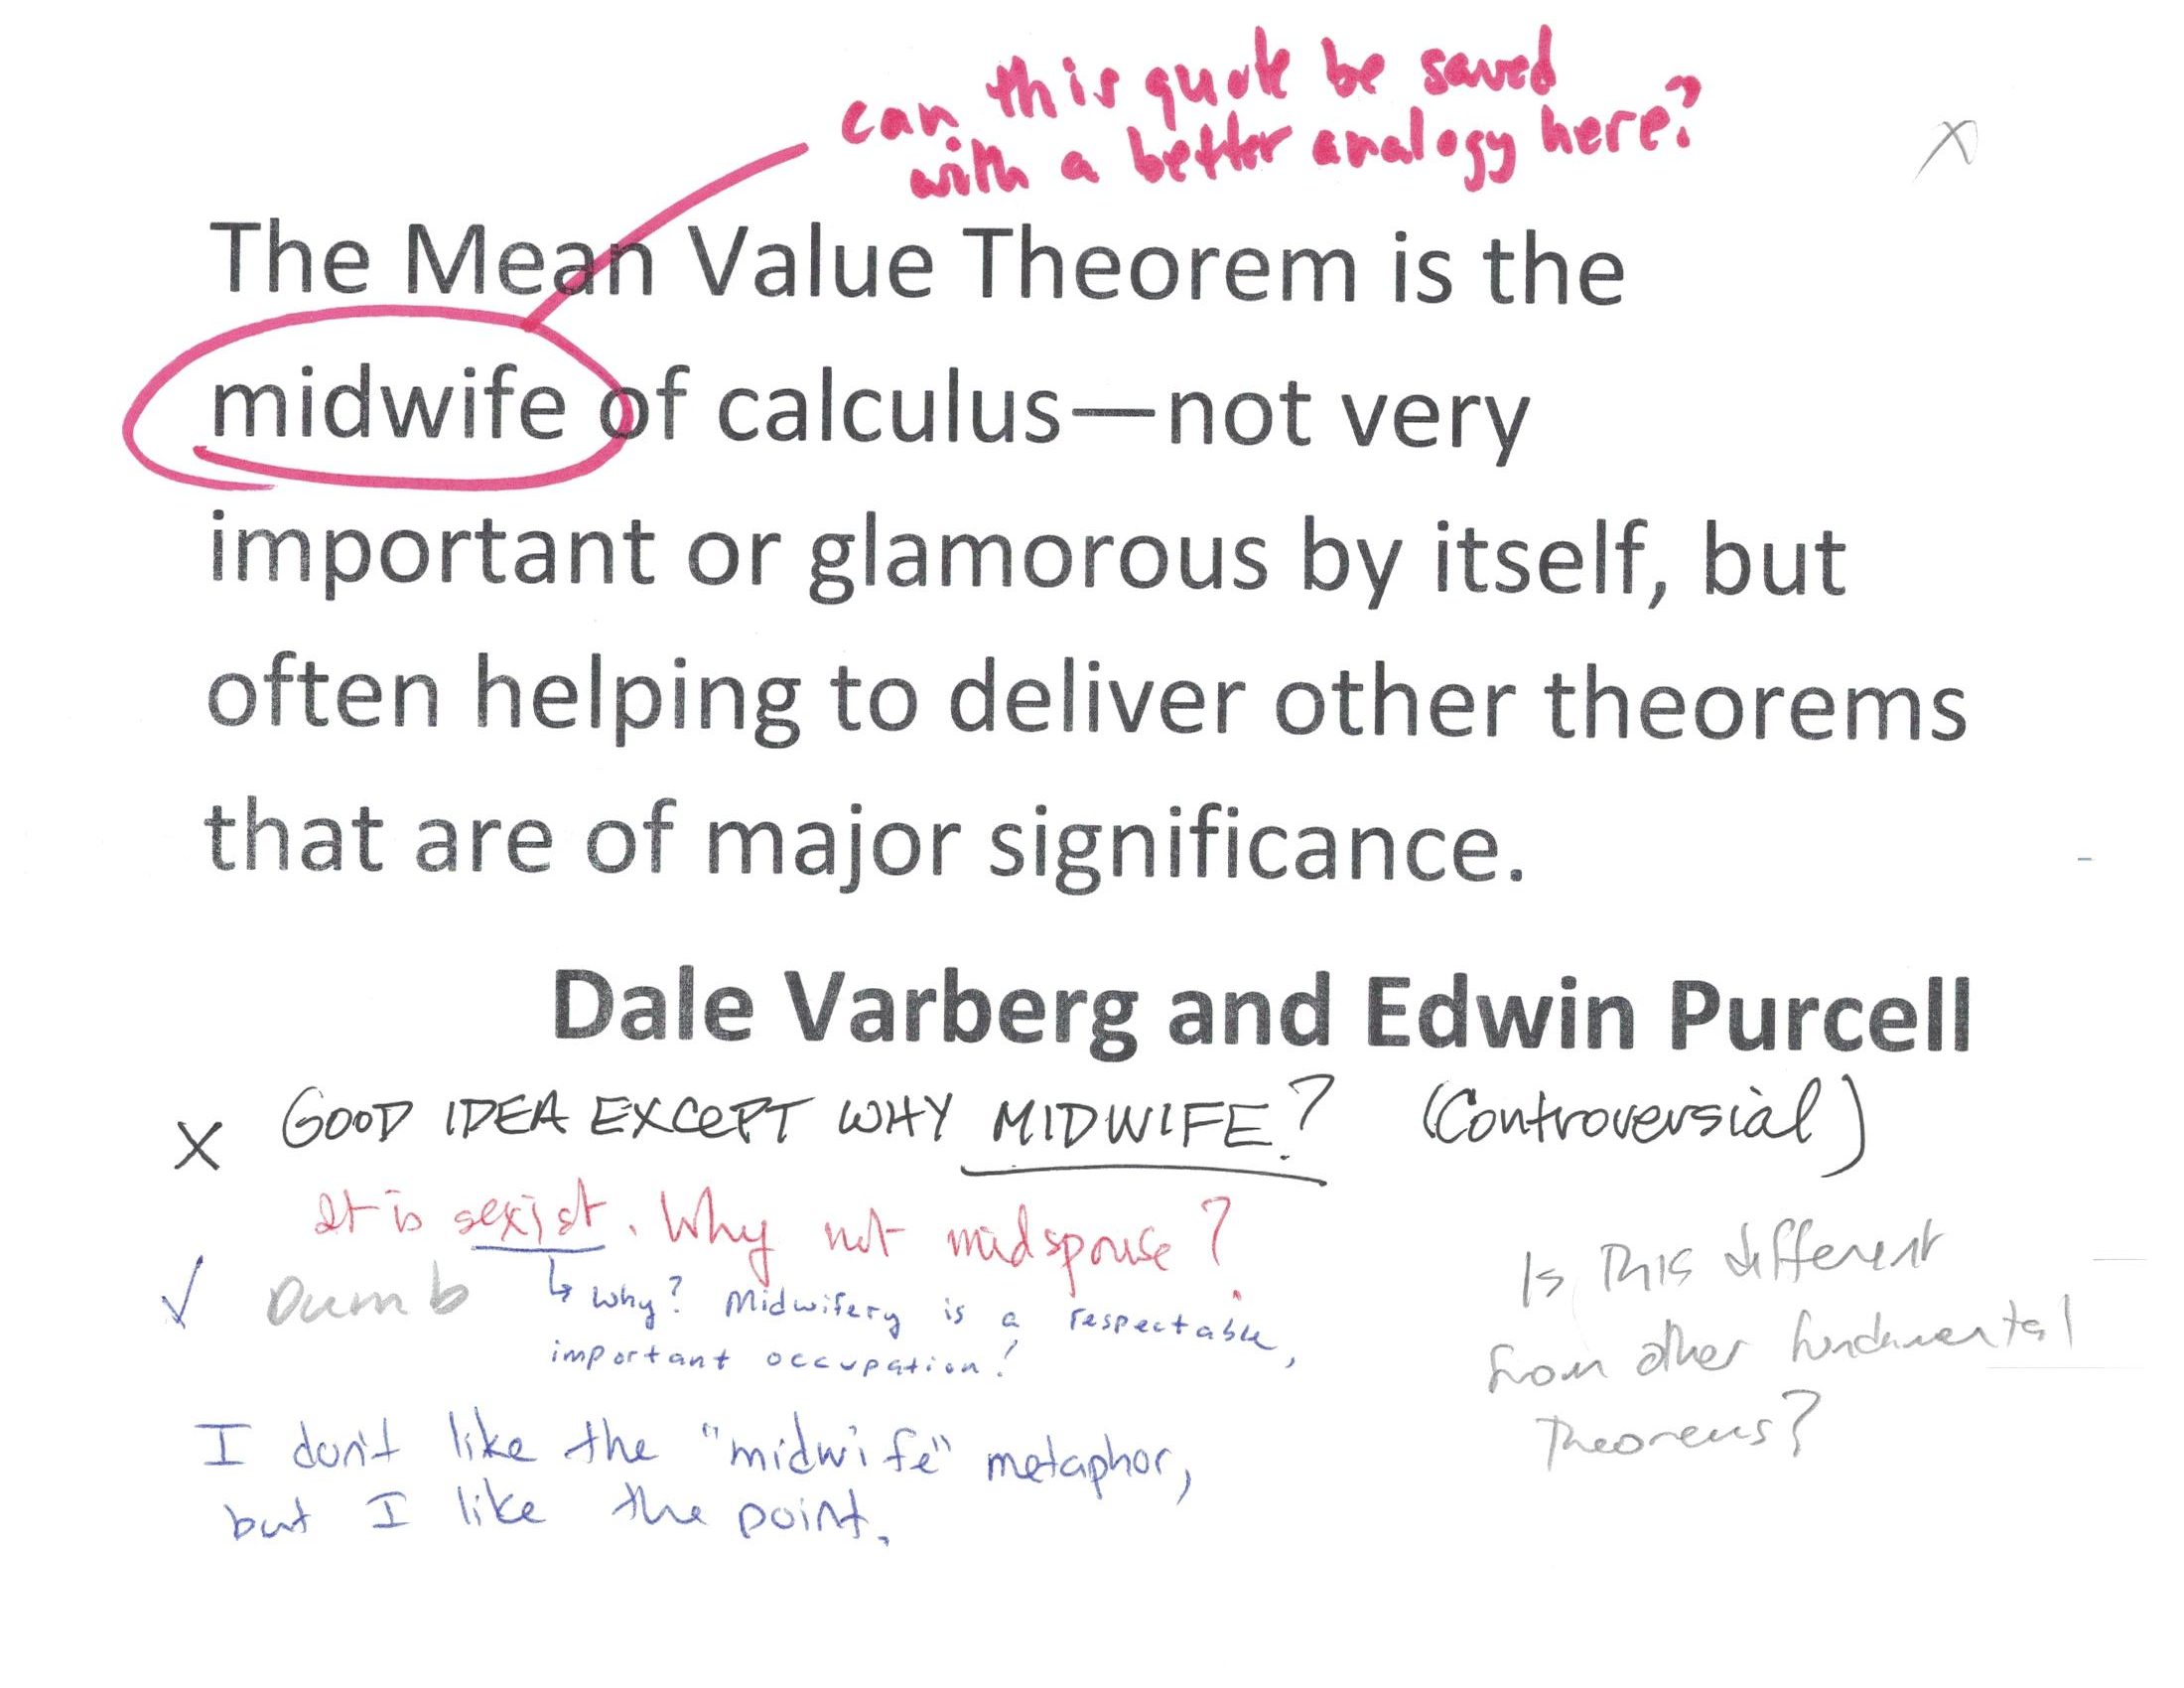 can this quote be saved
with a better analogy here?
X
The Mean Value Theorem is the
midwife of calculus—not very
important or glamorous by itself, but
often helping to deliver other theorems
that are of major significance.
Dale Varberg and Edwin Purcell
X GOOD IDEA EXCEPT WHY MIDWIFE? (Controversial)
It is sexist. Why not midspouse?
✓ Dumb
↳ Why? Midwifery is a respectable,
important occupation!
Is this different
from other fundamental
Theorems?
I don't like the "midwife" metaphor,
but I like the point.